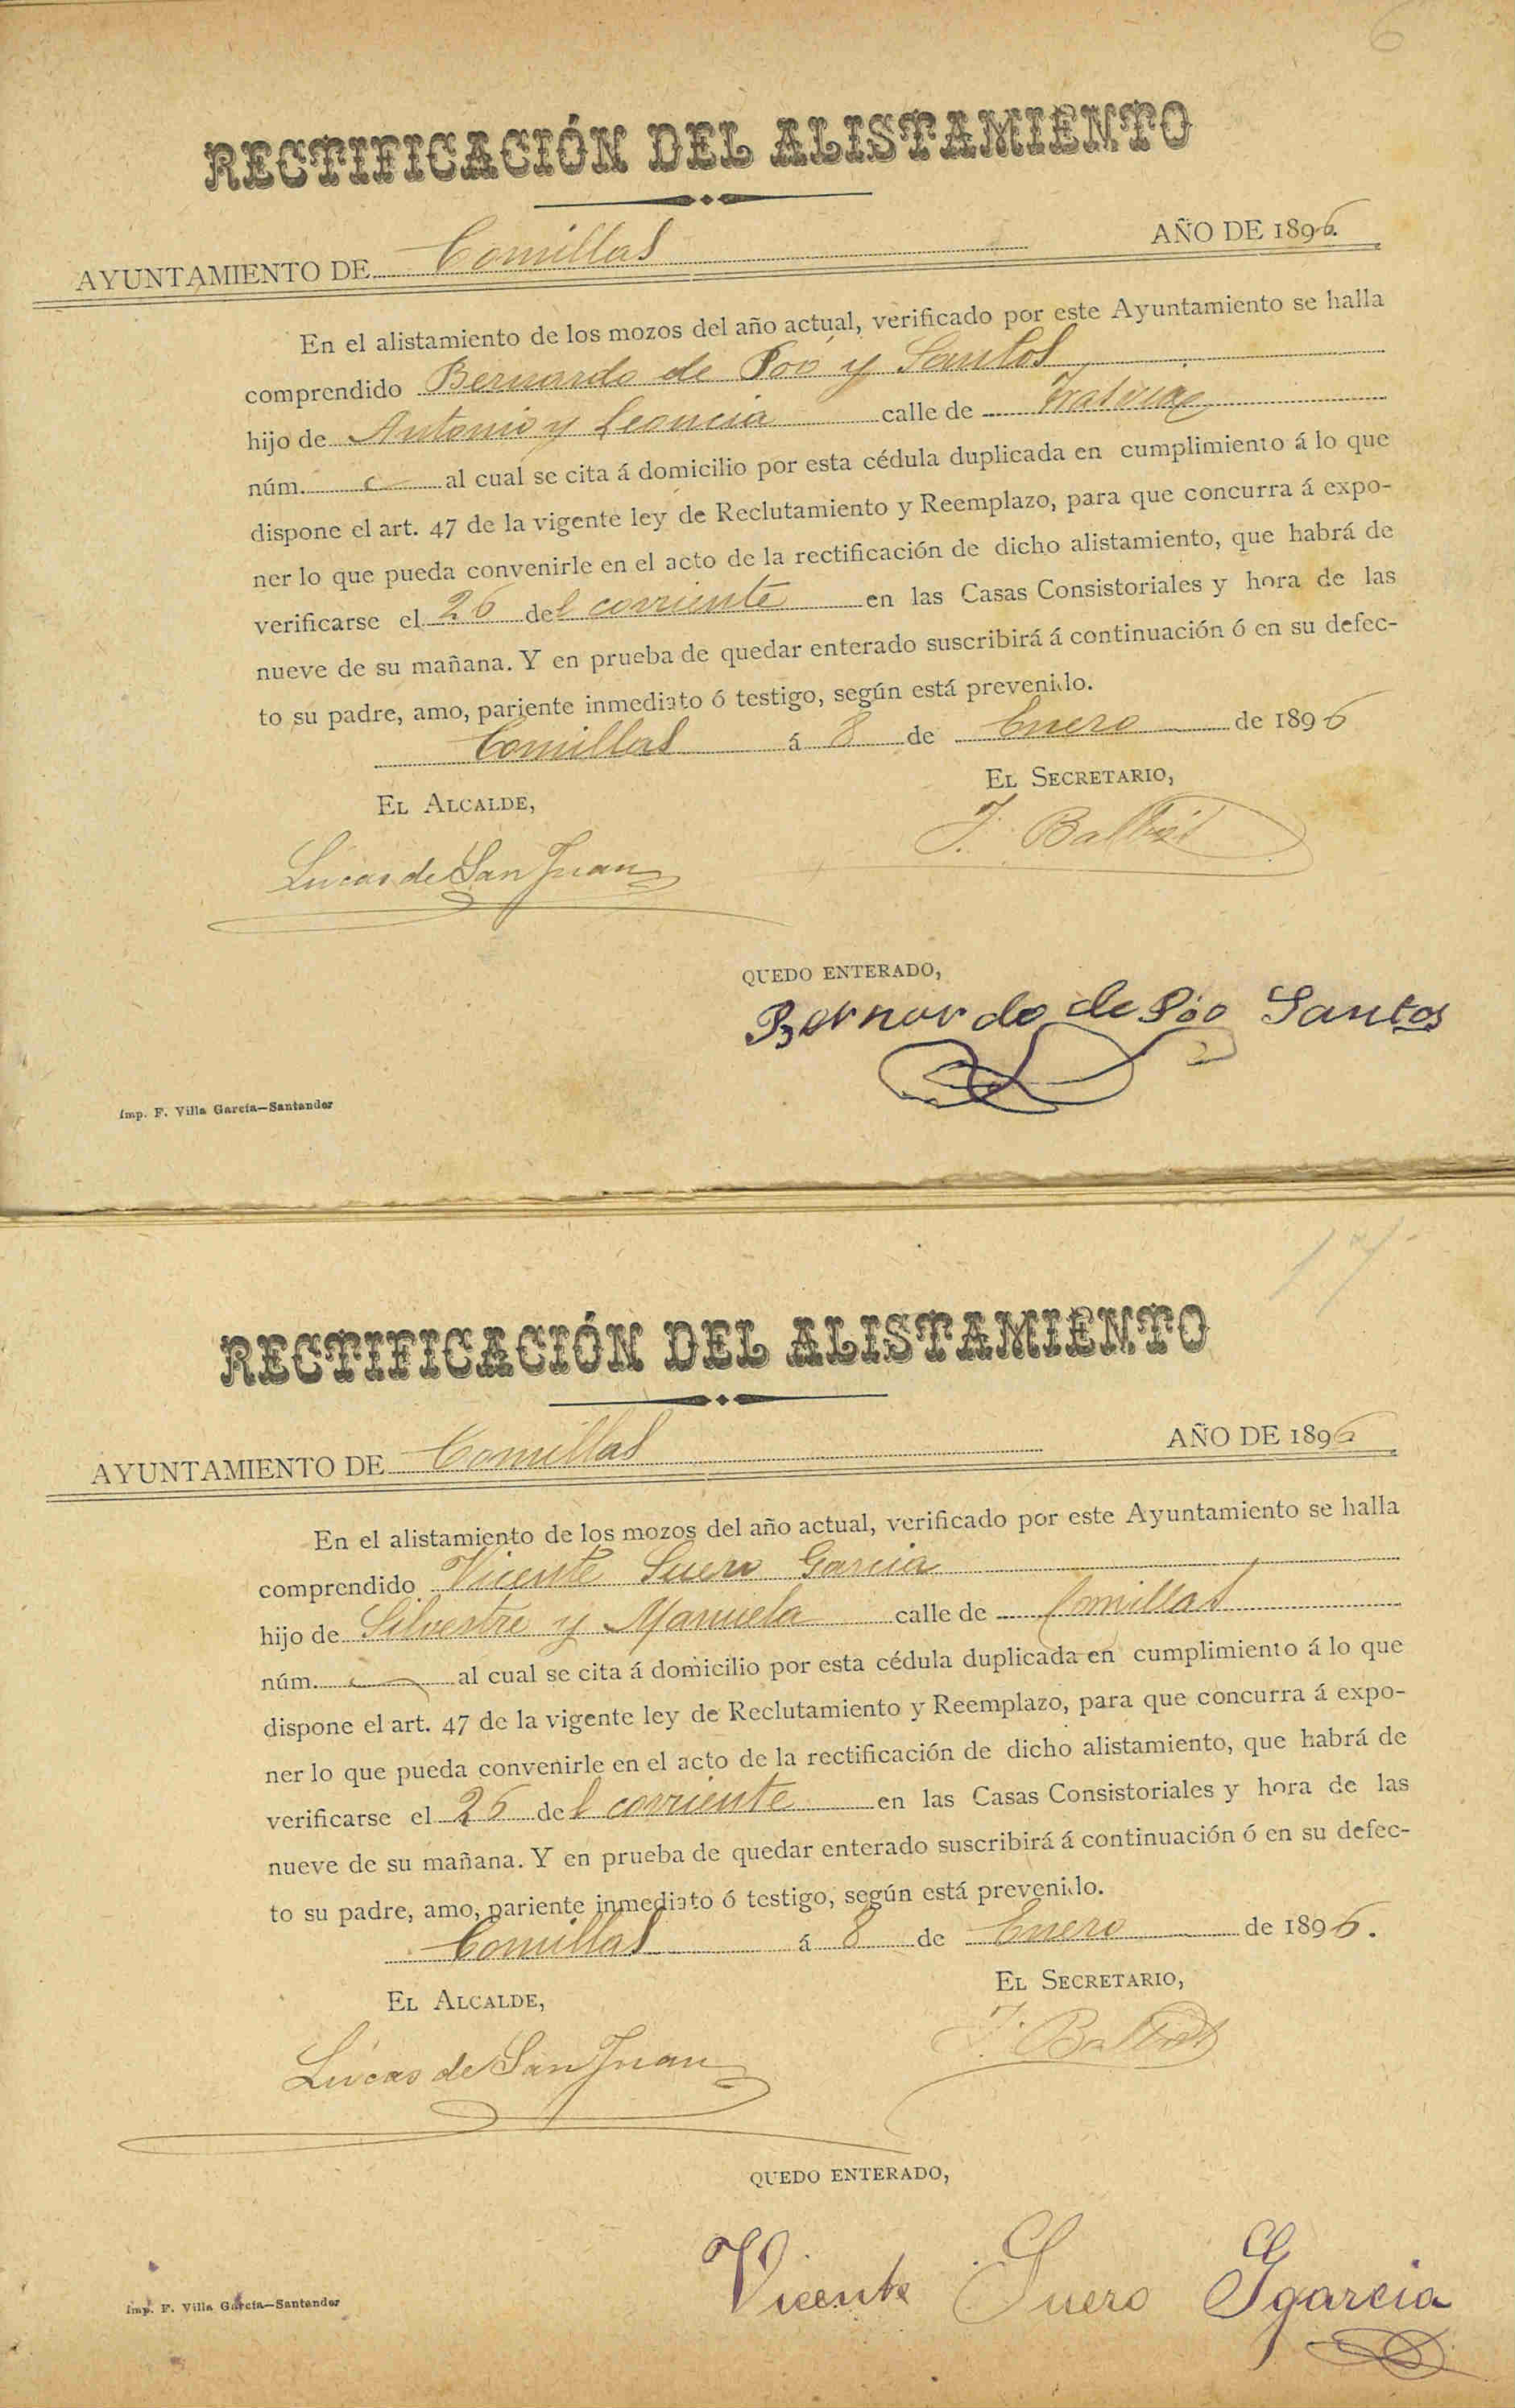 6
RECTIFICACIÓN DEL ALISTAMIENTO
AYUNTAMIENTO DE Comillas AÑO DE 1896.
En el alistamiento de los mozos del año actual, verificado por este Ayuntamiento se halla
comprendido Bernardo de Poó y Santos
hijo de Antonio y Leoncia calle de
núm. al cual se cita á domicilio por esta cédula duplicada en cumplimiento á lo que
dispone el art. 47 de la vigente ley de Reclutamiento y Reemplazo, para que concurra á expo-
ner lo que pueda convenirle en el acto de la rectificación de dicho alistamiento, que habrá de
verificarse el 26 del corriente en las Casas Consistoriales y hora de las
nueve de su mañana. Y en prueba de quedar enterado suscribirá á continuación ó en su defec-
to su padre, amo, pariente inmediato ó testigo, según está prevenido.
Comillas á 8 de Enero de 1896
EL ALCALDE, EL SECRETARIO,
Lucas de San Juan J.
QUEDO ENTERADO,
Bernardo de Póo Santos
Imp. F. Villa García—Santander
17
RECTIFICACIÓN DEL ALISTAMIENTO
AYUNTAMIENTO DE Comillas AÑO DE 1896
En el alistamiento de los mozos del año actual, verificado por este Ayuntamiento se halla
comprendido Vicente Suero Garcia
hijo de Silvestre y Manuela calle de Comillas
núm. al cual se cita á domicilio por esta cédula duplicada en cumplimiento á lo que
dispone el art. 47 de la vigente ley de Reclutamiento y Reemplazo, para que concurra á expo-
ner lo que pueda convenirle en el acto de la rectificación de dicho alistamiento, que habrá de
verificarse el 26 del corriente en las Casas Consistoriales y hora de las
nueve de su mañana. Y en prueba de quedar enterado suscribirá á continuación ó en su defec-
to su padre, amo, pariente inmediato ó testigo, según está prevenido.
Comillas á 8 de Enero de 1896.
EL ALCALDE, EL SECRETARIO,
Lucas de San Juan J.
QUEDO ENTERADO,
Vicente Suero Ggarcia
Imp. F. Villa García—Santander